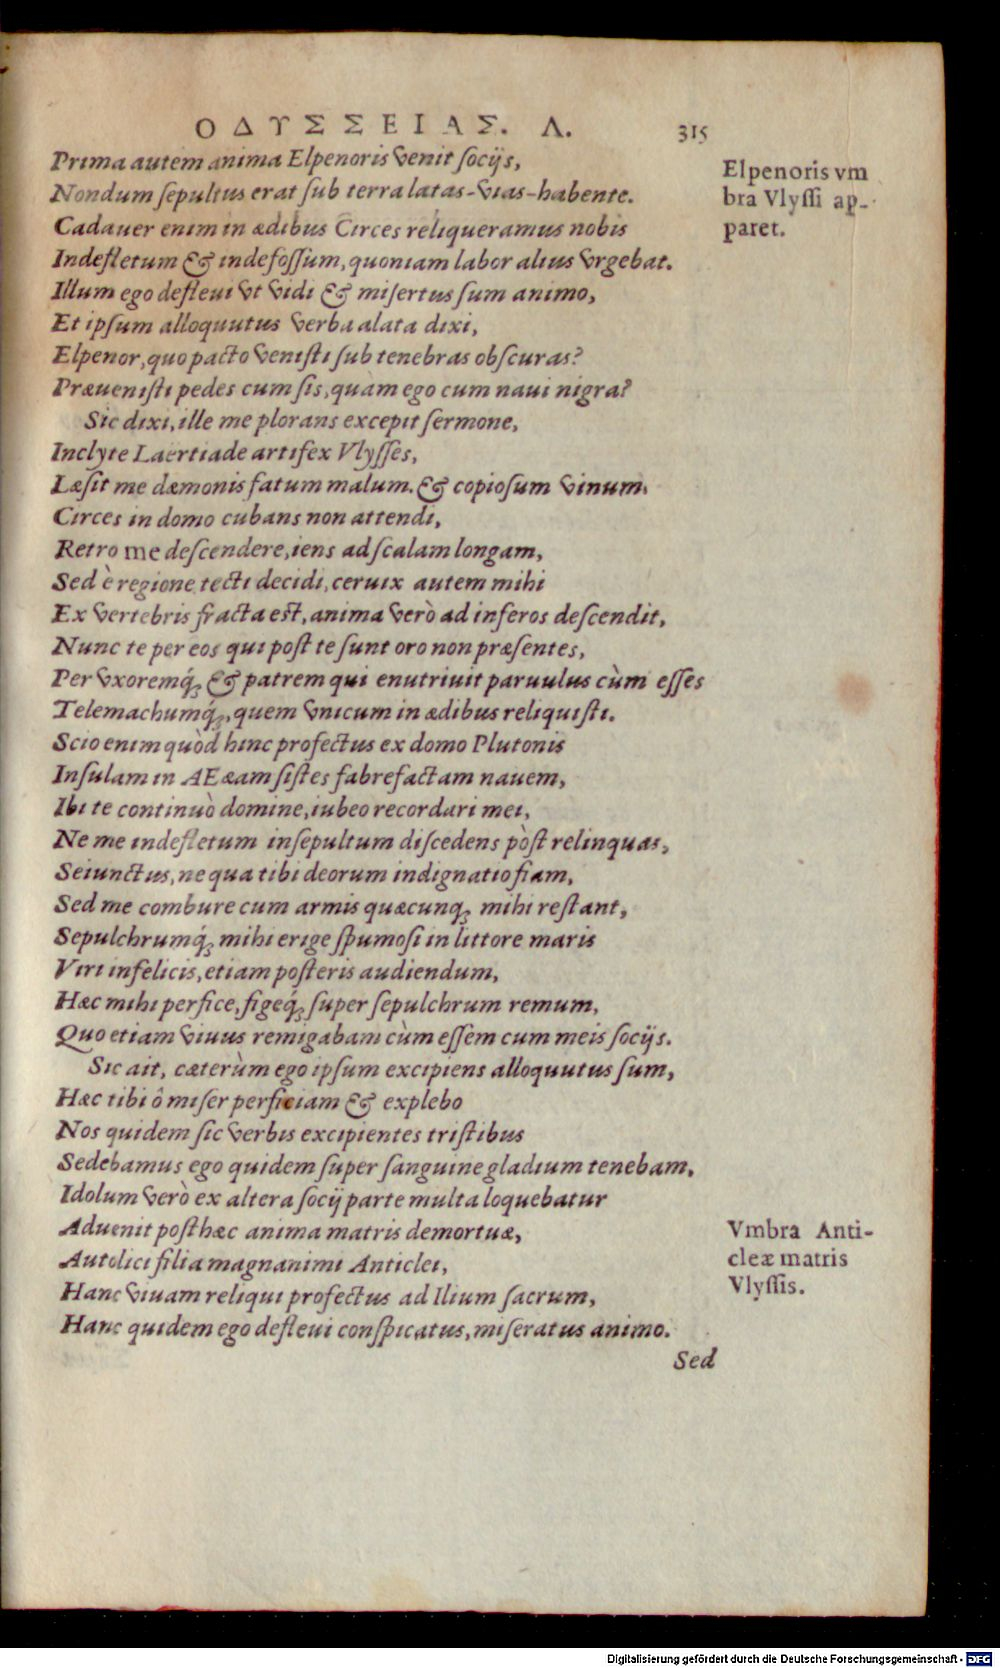 ΟΔΥΣΣΕΙΑΣ. Λ. 315
Prima autem anima Elpenoris venit socijs,
Nondum sepultus erat sub terra latas-vias-habente.
Cadauer enim in ædibus Circes reliqueramus nobis
Indefletum & indefossum, quoniam labor alius vrgebat.
Illum ego defleui vt vidi & misertus sum animo,
Et ipsum alloquutus verba alata dixi,
Elpenor, quo pacto venisti sub tenebras obscuras?
Præuenisti pedes cum sis, quàm ego cum naui nigra?
Sic dixi, ille me plorans excepit sermone,
Inclyte Laertiade artifex Vlysses,
Læsit me dæmonis fatum malum. & copiosum vinum.
Circes in domo cubans non attendi,
Retro me descendere, iens ad scalam longam,
Sed è regione tecti decidi, ceruix autem mihi
Ex vertebris fracta est, anima verò ad inferos descendit,
Nunc te per eos qui post te sunt oro non præsentes,
Per vxoremq́; & patrem qui enutriuit paruulus cùm esses
Telemachumq́;, quem vnicum in ædibus reliquisti.
Scio enim quòd hinc profectus ex domo Plutonis
Insulam in AEæam sistes fabrefactam nauem,
Ibi te continuò domine, iubeo recordari mei,
Ne me indefletum insepultum discedens pòst relinquas,
Seiunctus, ne qua tibi deorum indignatio fiam,
Sed me combure cum armis quæcunq; mihi restant,
Sepulchrumq́; mihi erige spumosi in littore maris
Viri infelicis, etiam posteris audiendum,
Hæc mihi perfice, figeq́; super sepulchrum remum,
Quo etiam viuus remigabam cùm essem cum meis socijs.
Sic ait, cæterùm ego ipsum excipiens alloquutus sum,
Hæc tibi ô miser perficiam & explebo
Nos quidem sic verbis excipientes tristibus
Sedebamus ego quidem super sanguine gladium tenebam,
Idolum verò ex altera socij parte multa loquebatur
Aduenit posthæc anima matris demortuæ,
Autolici filia magnanimi Anticlei,
Hanc viuam reliqui profectus ad Ilium sacrum,
Hanc quidem ego defleui conspicatus, miseratus animo.
Sed
Elpenoris vm
bra Vlyssi ap-
paret.
Vmbra Anti-
cleæ matris
Vlyssis.
Digitalisierung gefördert durch die Deutsche Forschungsgemeinschaft - DFG